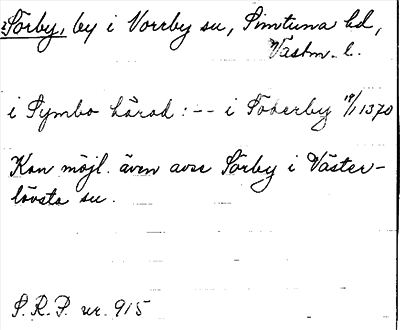 Sörby, by i Vorrby su, Simtuna hd,
Västm. l.
i Symbo härad: -- i Söderby 19/1 1370
Kan möjl. även avse Sörby i Väster-
lövsta su.
S.R.P. nr. 915